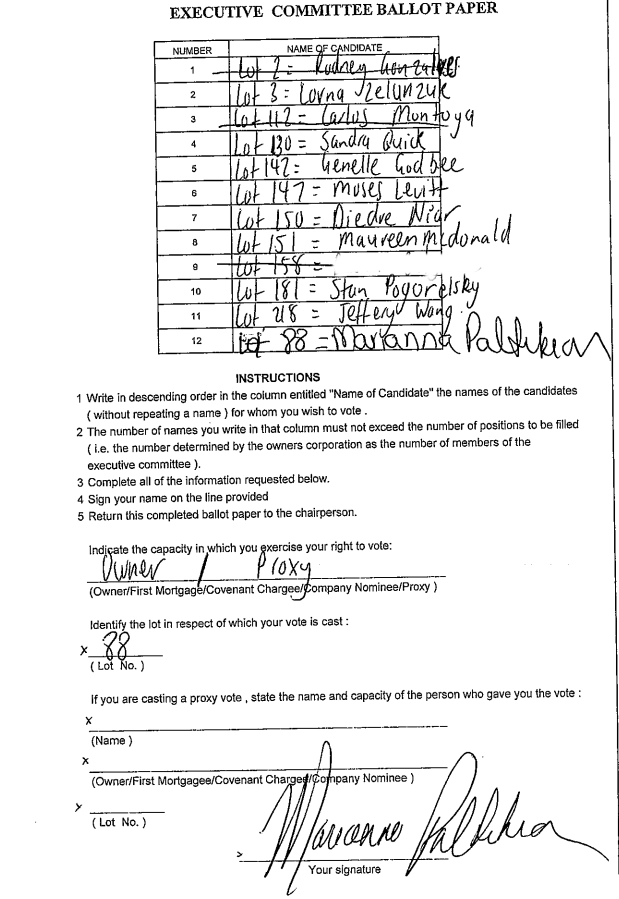 EXECUTIVE COMMITTEE BALLOT PAPER
NUMBER NAME OF CANDIDATE
1 Lot 2 = Rodney Gonzalves
2 Lot 3 = Lorna Zelunzuk
3 Lot 112 = Carlos Montoya
4 Lot 130 = Sandra Quick
5 Lot 142 = Genelle Godbee
6 Lot 147 = Moses Levitt
7 Lot 150 = Diedre Niar
8 Lot 151 = Maureen Mcdonald
9 Lot 158 =
10 Lot 181 = Stan Pogorelsky
11 Lot 218 = Jeffery Wang
12 Lot 88 = Maryanna Paltikian
INSTRUCTIONS
1 Write in descending order in the column entitled "Name of Candidate" the names of the candidates
( without repeating a name ) for whom you wish to vote .
2 The number of names you write in that column must not exceed the number of positions to be filled
( i.e. the number determined by the owners corporation as the number of members of the
executive committee ).
3 Complete all of the information requested below.
4 Sign your name on the line provided
5 Return this completed ballot paper to the chairperson.
Indicate the capacity in which you exercise your right to vote:
Owner / Proxy
(Owner/First Mortgage/Covenant Chargee/Company Nominee/Proxy )
Identify the lot in respect of which your vote is cast :
x 88
( Lot No. )
If you are casting a proxy vote , state the name and capacity of the person who gave you the vote :
x
(Name )
x
(Owner/First Mortgagee/Covenant Charged/Company Nominee )
x
( Lot No. )
Your signature